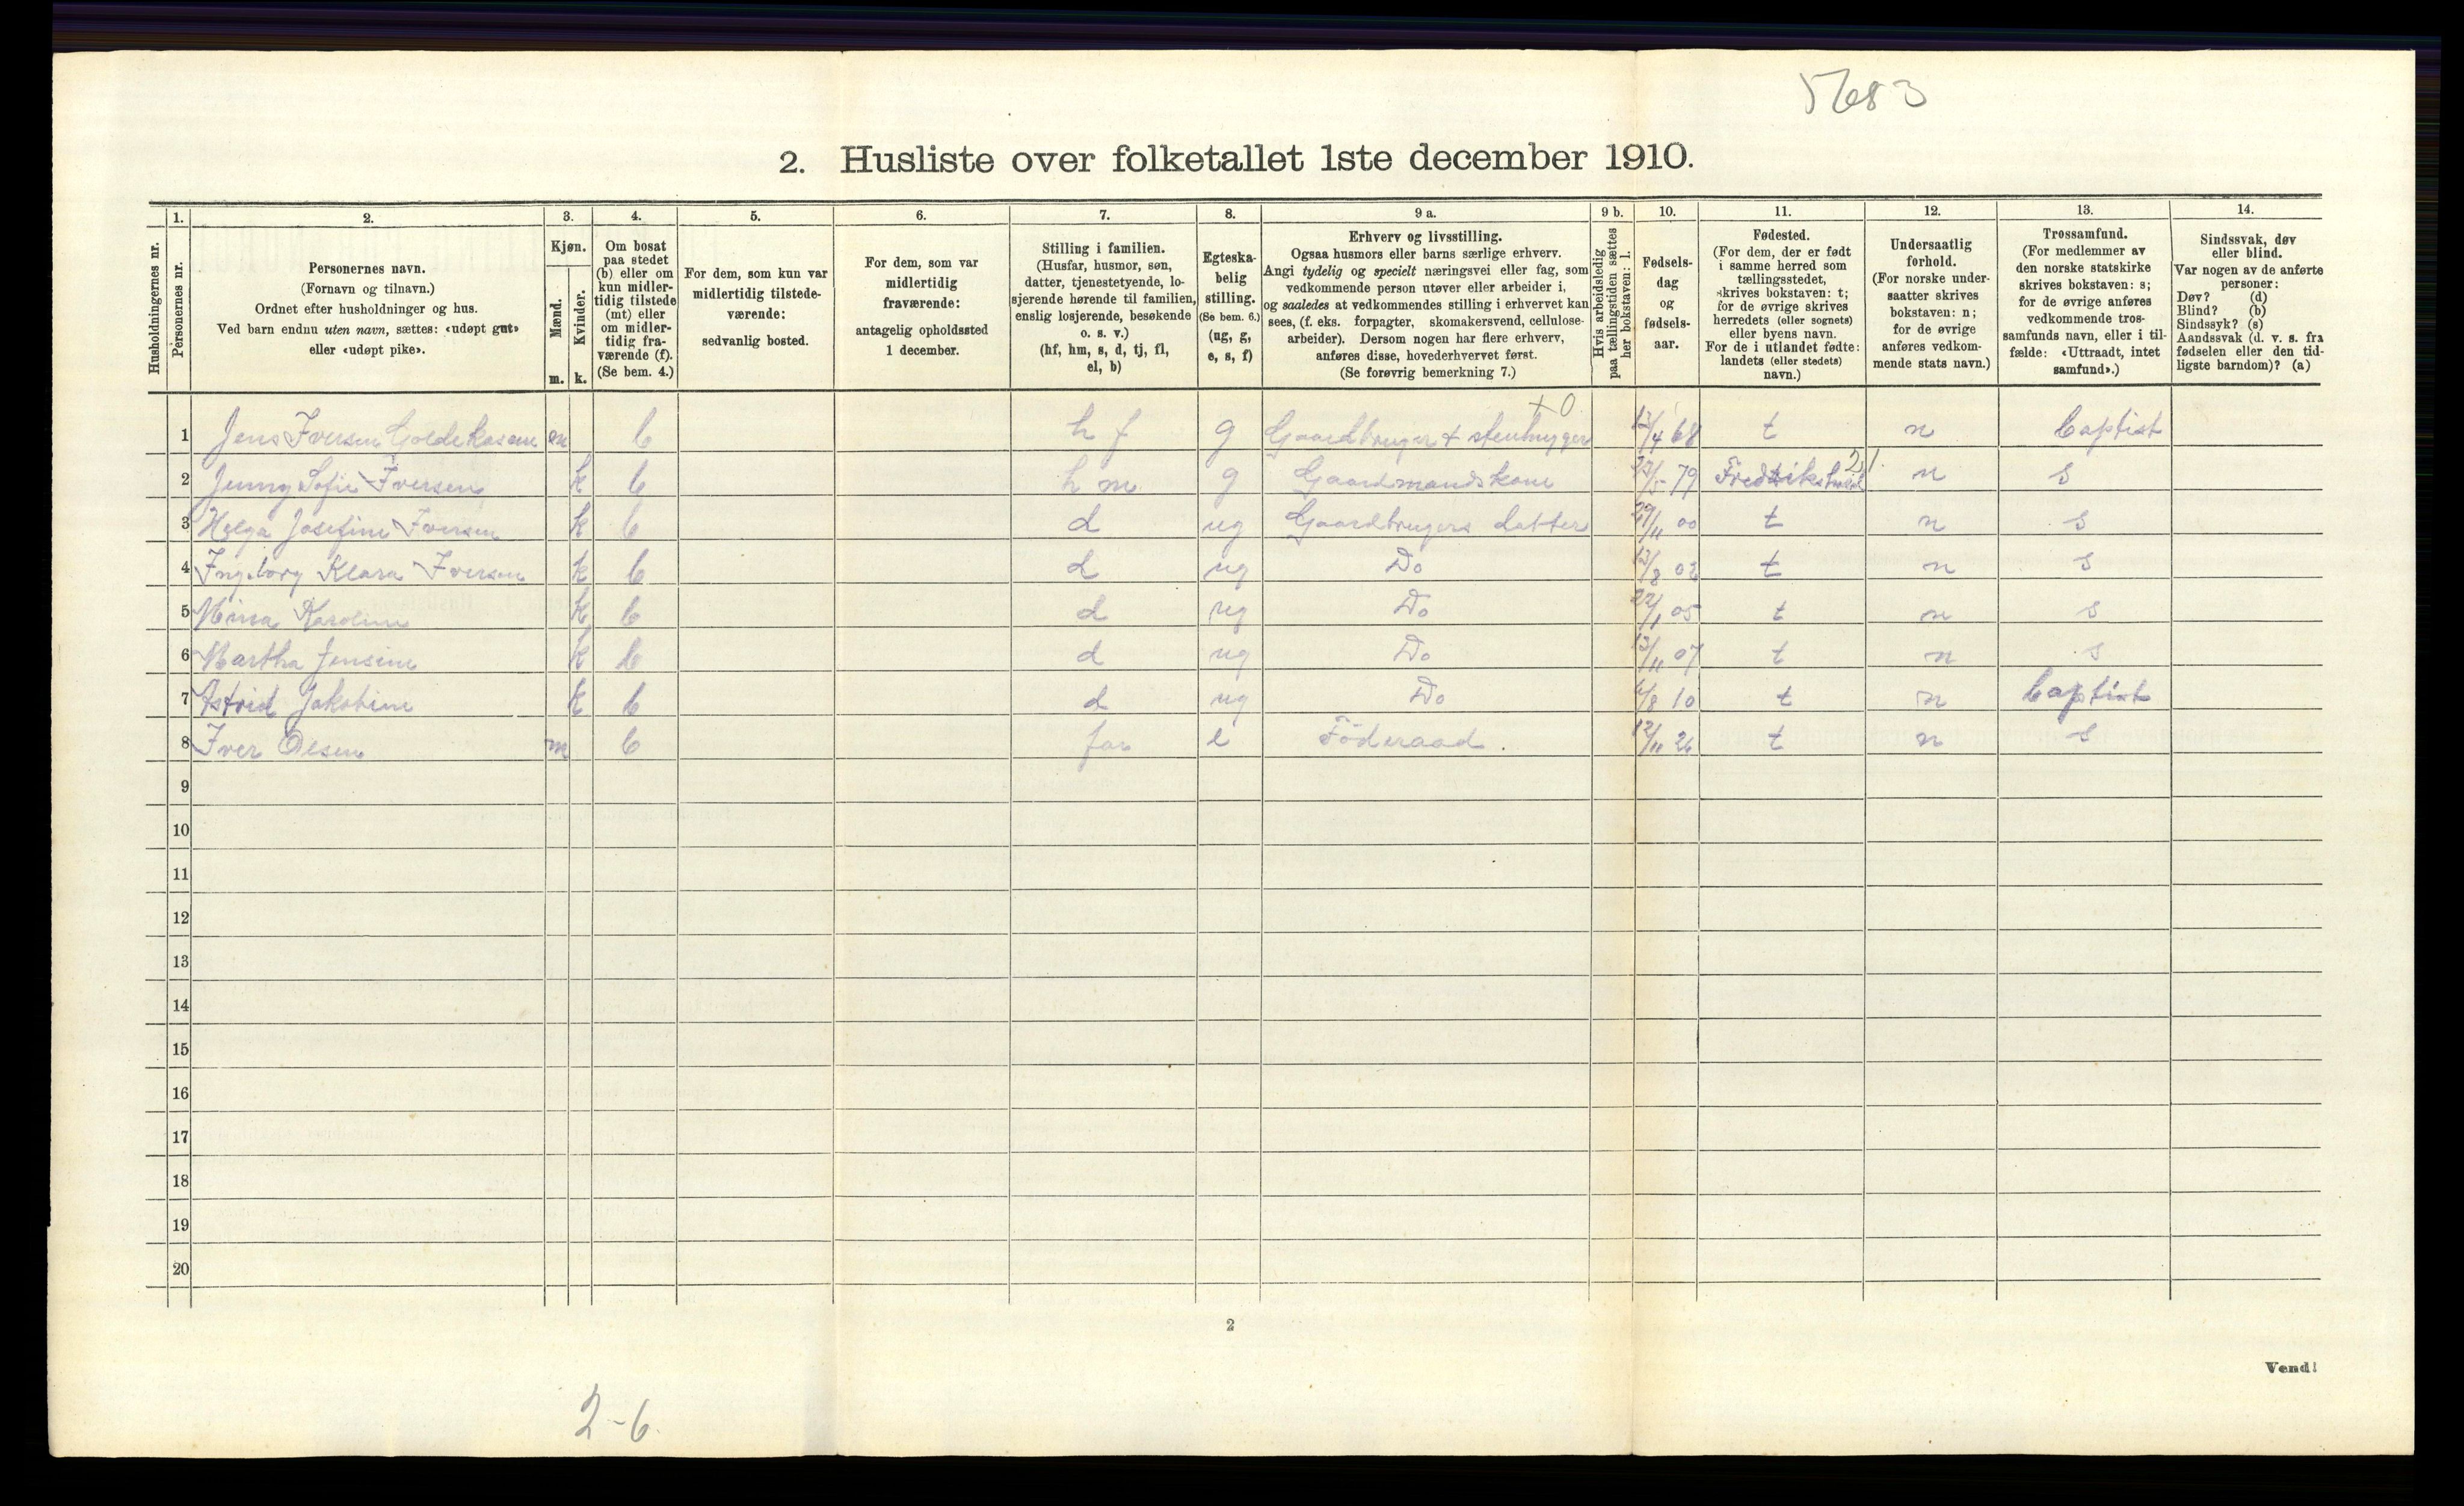 5683
2. Husliste over folketallet 1ste december 1910.
1. 2. 3. 4. 5. 6. 7. 8. 9 a. 9 b. 10. 11. 12. 13. 14.
Husholdningernes nr.
Personernes nr.
Personernes navn.
(Fornavn og tilnavn.)
Ordnet efter husholdninger og hus.
Ved barn endnu uten navn, sættes: «udøpt gut»
eller «udøpt pike».
Kjøn.
Mænd.
Kvinder.
m. k.
Om bosat
paa stedet
(b) eller om
kun midler-
tidig tilstede
(mt) eller
om midler-
tidig fra-
værende (f).
(Se bem. 4.)
For dem, som kun var
midlertidig tilstede-
værende:
sedvanlig bosted.
For dem, som var
midlertidig
fraværende:
antagelig opholdssted
1 december.
Stilling i familien.
(Husfar, husmor, søn,
datter, tjenestetyende, lo-
sjerende hørende til familien,
enslig losjerende, besøkende
o. s. v.)
(hf, hm, s, d, tj, fl,
el, b)
Egteska-
belig
stilling.
(Se bem. 6.)
(ug, g,
e, s, f)
Erhverv og livsstilling.
Ogsaa husmors eller barns særlige erhverv.
Angi tydelig og specielt næringsvei eller fag, som
vedkommende person utøver eller arbeider i,
og saaledes at vedkommendes stilling i erhvervet kan
sees, (f. eks. forpagter, skomakersvend, cellulose-
arbeider). Dersom nogen har flere erhverv,
anføres disse, hovederhvervet først.
(Se forøvrig bemerkning 7.)
Hvis arbeidsledig
paa tællingstiden sættes
her bokstaven: l.
Fødsels-
dag
og
fødsels-
aar.
Fødested.
(For dem, der er født
i samme herred som
tællingsstedet,
skrives bokstaven: t;
for de øvrige skrives
herredets (eller sognets)
eller byens navn.
For de i utlandet fødte:
landets (eller stedets)
navn.)
Undersaatlig
forhold.
(For norske under-
saatter skrives
bokstaven: n;
for de øvrige
anføres vedkom-
mende stats navn.)
Trossamfund.
(For medlemmer av
den norske statskirke
skrives bokstaven: s;
for de øvrige anføres
vedkommende tros-
samfunds navn, eller i til-
fælde: «Uttraadt, intet
samfund».)
Sindssvak, døv
eller blind.
Var nogen av de anførte
personer:
Døv? (d)
Blind? (b)
Sindssyk? (s)
Aandssvak (d. v. s. fra
fødselen eller den tid-
ligste barndom)? (a)
+ 0
1 Jens Iversen m b h f g Gaardbruger + stenhugger 12/4 68 t n baptist
21.
2 Jenny Sofie Iversen k b h m g Gaardmandskone 79 Fredrikshald n s
3 Helga Josefine Iversen k b d ug Gaardbrugers datter 29/11 00 t n s
4 Ingeborg Klara Iversen k b d ug Do 13/8 02 t n s
5 Mina Karoline k b d ug Do 22/1 05 t n s
6 Martha Jensine k b d ug Do 13/11 07 t n s
7 Astrid Jakobine k b d ug Do 6/8 10 t n baptist
8 Iver Olsen m b far e Föderaad. 12/11 26 t n s
9
10
11
12
13
14
15
16
17
18
19
20
2
Vend!
2-6.